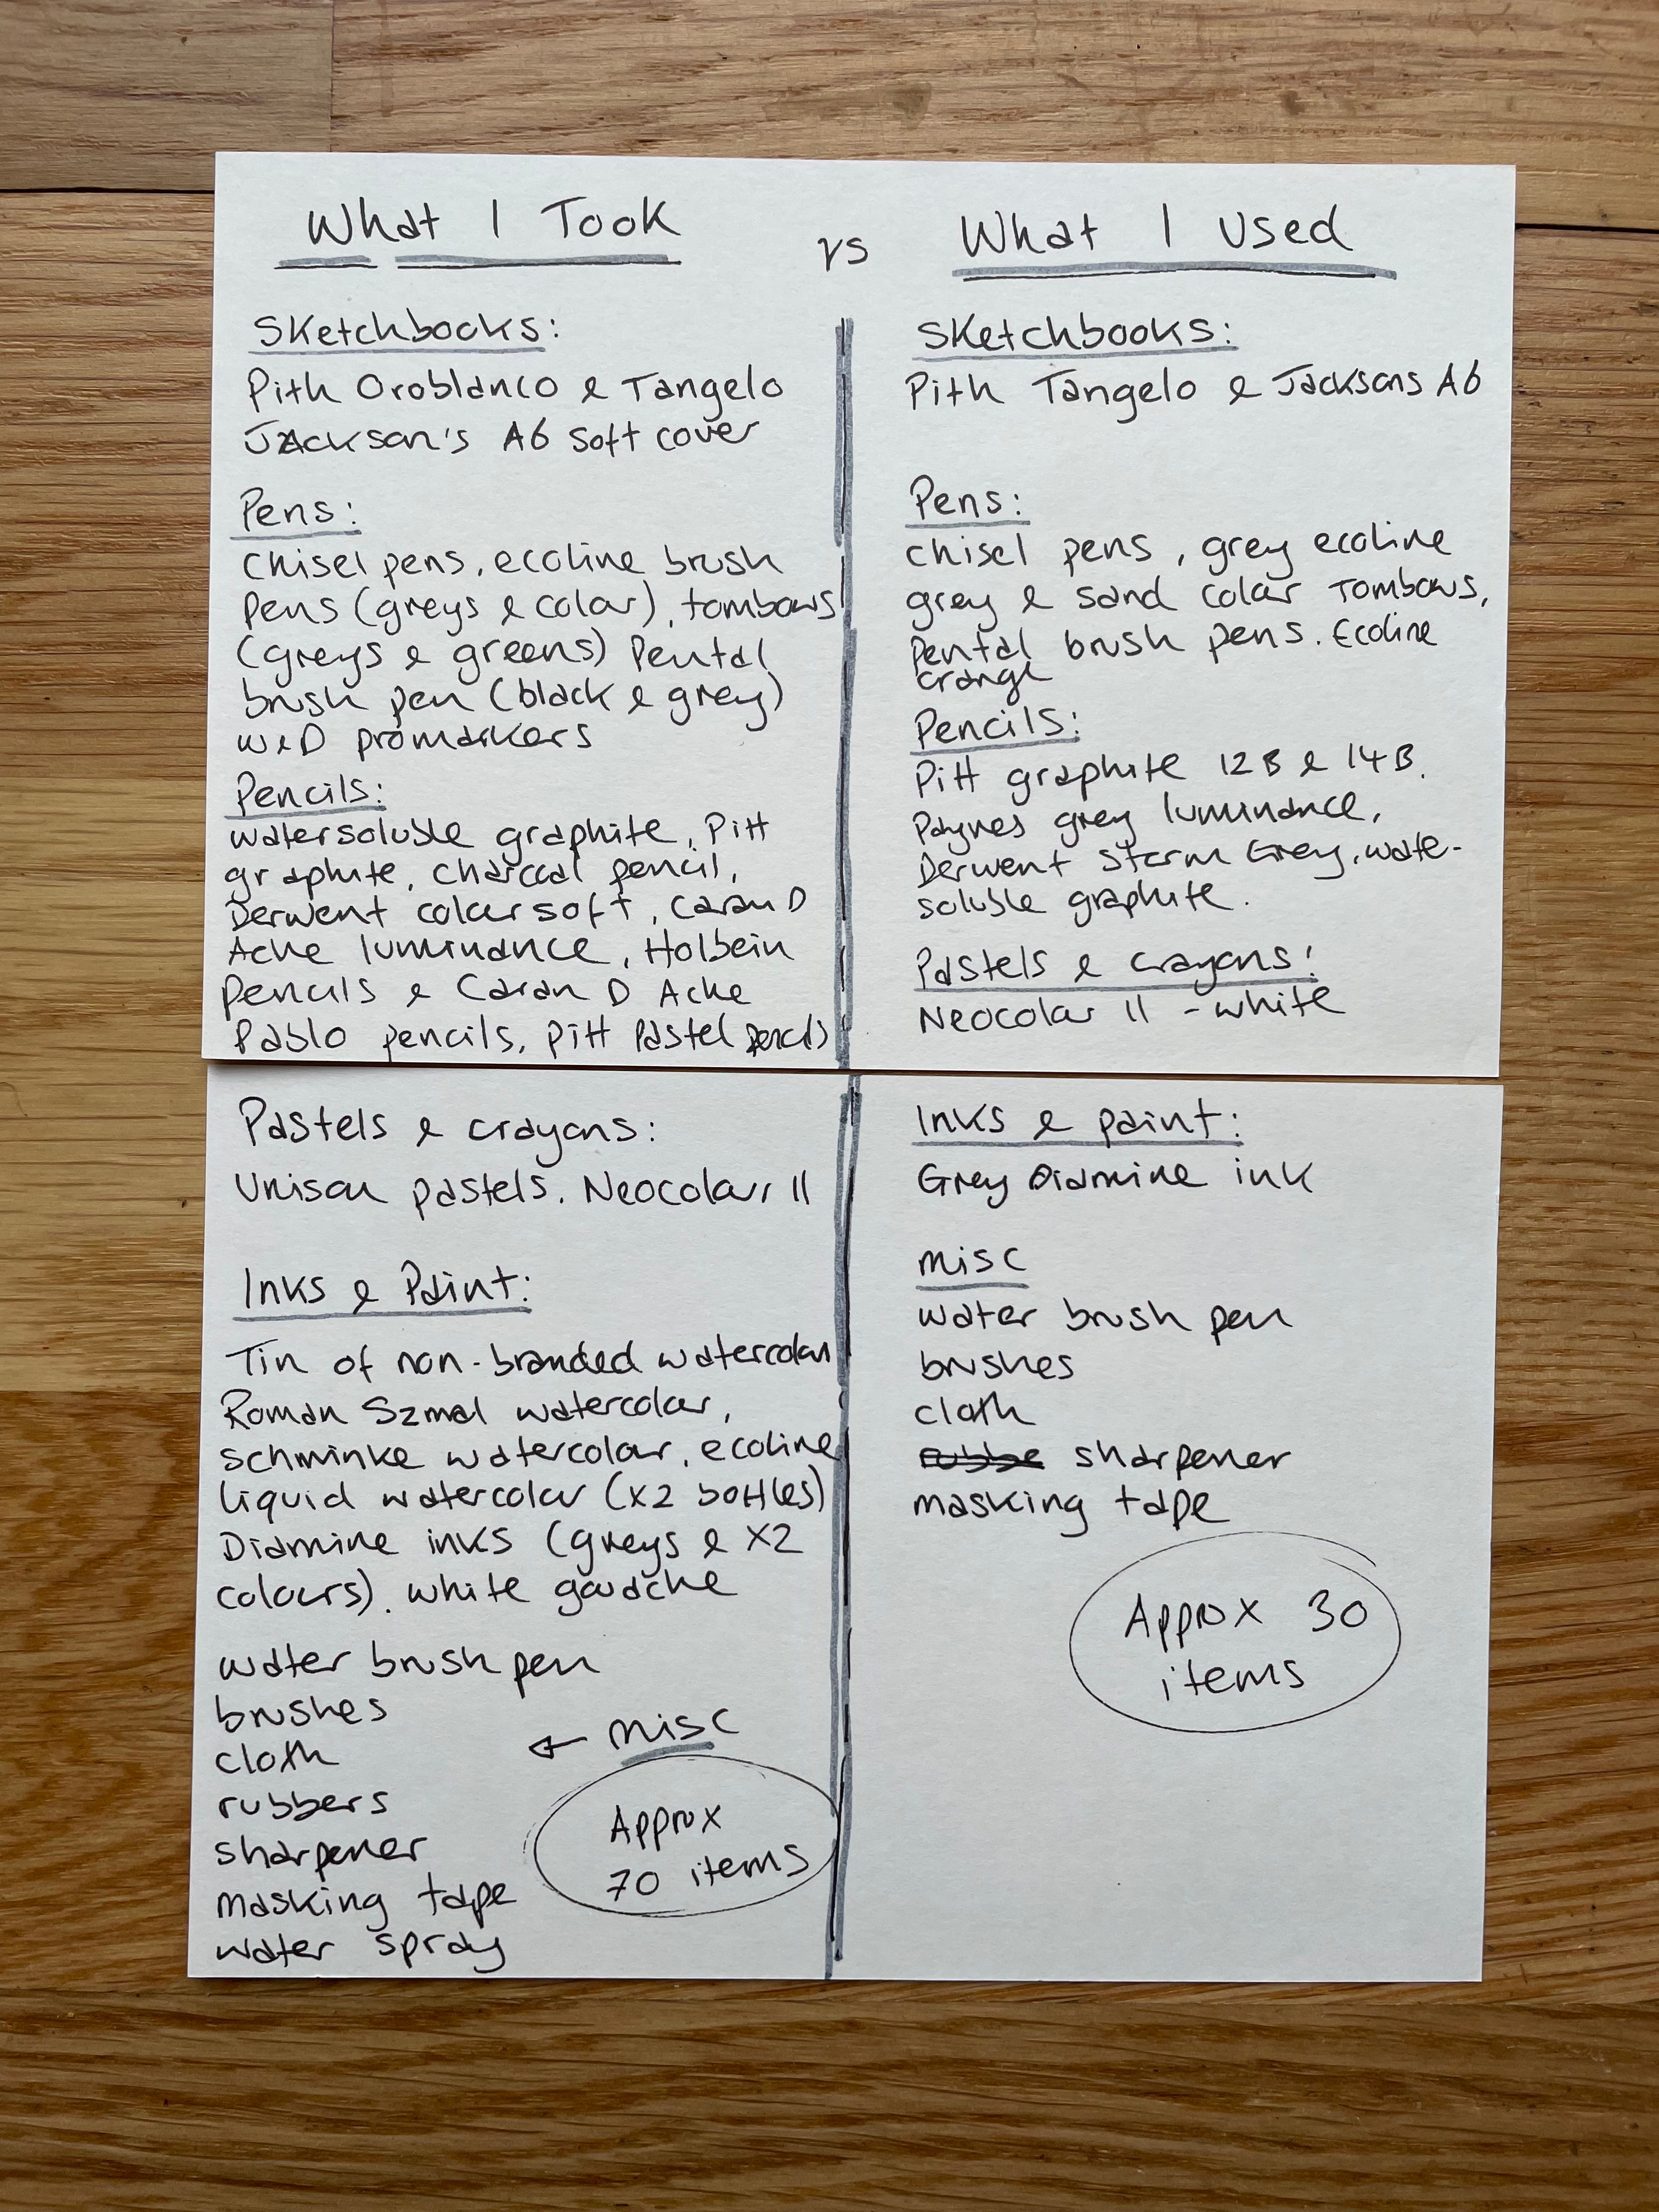 What I Took
vs
What I Used
Sketchbooks:
Pith Oroblanco & Tangelo
Jackson's A6 soft cover
Pens:
chisel pens, ecoline brush
pens (greys & colour), tombows
(greys & greens) Pental
brush pen (black & grey)
W&D promarkers
Pencils:
watersoluble graphite, Pitt
graphite, charcoal pencil,
Derwent coloursoft, Caran D
Ache luminance, Holbein
pencils & Caran D Ache
Pablo pencils, Pitt Pastel pencils
Sketchbooks:
Pith Tangelo & Jacksons A6
Pens:
chisel pens, grey ecoline
grey & sand colour Tombows,
Pental brush pens. Ecoline
orange
Pencils:
Pitt graphite 12B & 14B.
Paynes grey luminance,
Derwent Storm Grey, wate-
soluble graphite.
Pastels & crayons:
Neocolour II - white
Pastels & crayons:
Unison pastels. Neocolour II
Inks & Paint:
Tin of non-branded watercolour
Roman Szmal watercolour,
schminke watercolour, ecoline
liquid watercolour (x2 bottles)
Diamine inks (greys & x2
colours). white gouache
water brush pen
brushes
cloth
rubbers
sharpener
masking tape
water spray
← misc
Approx
70 items
Inks & paint:
Grey Diamine ink
misc
water brush pen
brushes
cloth
sharpener
masking tape
Approx 30
items